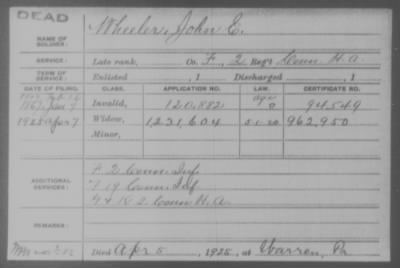 DEAD
NAME OF SOLDIER: Wheeler, John E.
SERVICE: Late rank, Co. F, 2 Reg't Conn H.A.
TERM OF SERVICE: Enlisted , 1 Discharged , 1
DATE OF FILING. CLASS. APPLICATION NO. LAW. CERTIFICATE NO.
1867, Invalid, 120,882 94,549
1925 Apr 7 Widow, 1,231,604 5-1-20 962,950
Minor,
ADDITIONAL SERVICES:
F 2 Conn Inf
F 19 Conn Inf
& K 2 Conn H.A.
REMARKS:
Died Apr 5, 1925, at Warren, Pa